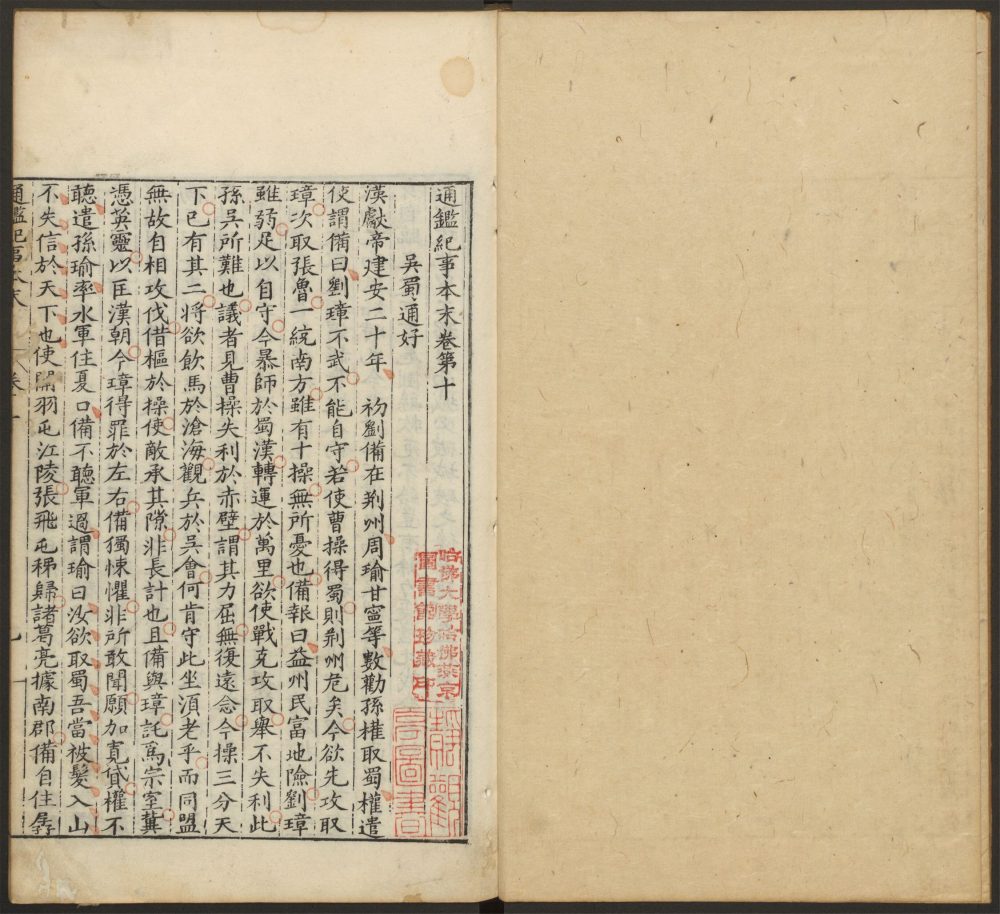 通鑑紀事本末卷第十
吳蜀通好
漢獻帝建安二十年初劉備在荆州周瑜甘寧等數勸孫權取蜀權遣
使謂備曰劉璋不武不能自守若使曹操得蜀則荆州危矣今欲先攻取
璋次取張魯一統南方雖有十操無所憂也備報曰益州民富地險劉璋
雖弱足以自守今暴師於蜀漢轉運於萬里欲使戰克攻取舉不失利此
孫吳所難也議者見曹操失利於赤壁謂其力屈無復遠念今操三分天
下已有其二將欲飲馬於滄海觀兵於吳會何肯守此坐須老乎而同盟
無故自相攻伐借樞於操使敵承其隙非長計也且備與璋託爲宗室冀
憑英靈以匡漢朝今璋得罪於左右備獨悚懼非所敢聞願加寬貸權不
聽遣孫瑜率水軍住夏口備不聽軍過謂瑜曰汝欲取蜀吾當被髮入山
不失信於天下也使關羽屯江陵張飛屯秭歸諸葛亮據南郡備自住孱
通鑑紀事本末 卷十 九一
哈佛大學哈佛燕京
圖書館珍藏印